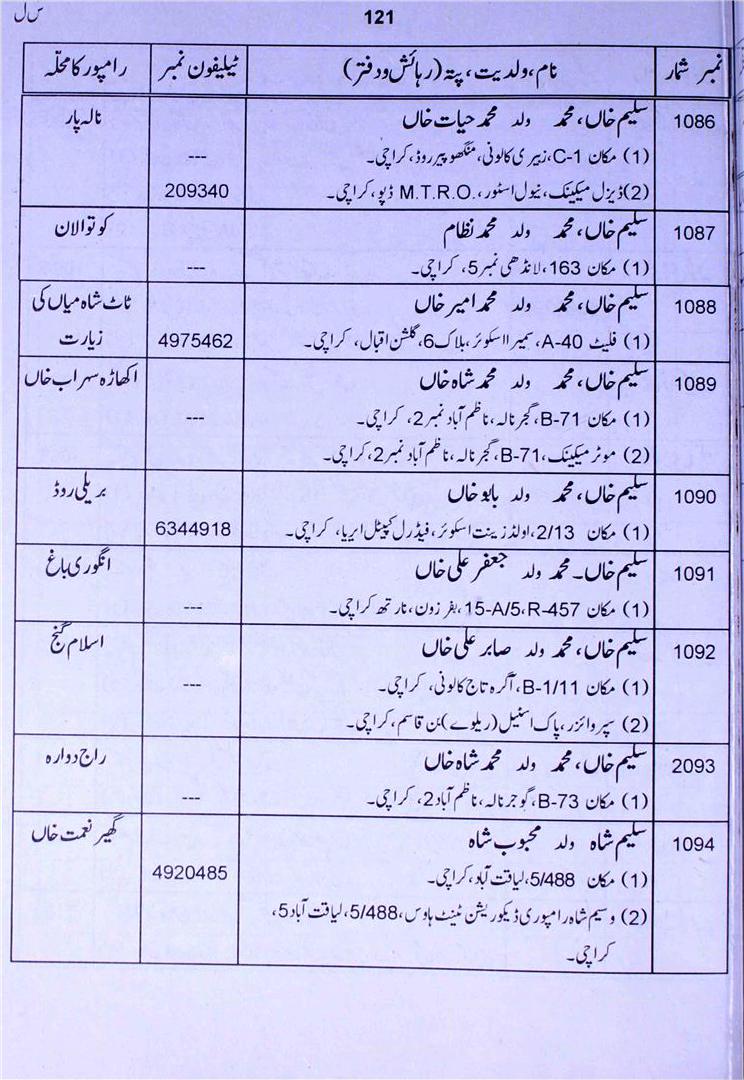 س ل
121
نمبر شمار | نام، ولدیت، پتہ (رہائش و دفتر) | ٹیلیفون نمبر | رامپور کا محلّہ
1086 | سلیم خاں، محمد ولد محمد حیات خاں | | نالہ پار
(1) مکان C-1، زبیری کالونی، منگھو پیر روڈ، کراچی۔ | ---
(2) ڈیزل میکینک، نیول اسٹور، M.T.R.O. ڈپو، کراچی۔ | 209340
1087 | سلیم خاں، محمد ولد محمد نظام | | کوتوالان
(1) مکان 163، لانڈھی نمبر 5، کراچی۔ | ---
1088 | سلیم خاں، محمد ولد محمد امیر خاں | | ٹاٹ شاہ میاں کی
(1) فلیٹ A-40، سمیرا اسکوئر، بلاک 6، گلشن اقبال، کراچی۔ | 4975462 | زیارت
1089 | سلیم خاں، محمد ولد محمد شاہ خاں | | اکھاڑہ سہراب خاں
(1) مکان B-71، گجر نالہ، ناظم آباد نمبر 2، کراچی۔ | ---
(2) موٹر میکینک، B-71، گجر نالہ، ناظم آباد نمبر 2، کراچی۔
1090 | سلیم خاں، محمد ولد بابو خاں | | بریلی روڈ
(1) مکان 2/13، اولڈ زینت اسکوئر، فیڈرل کیپٹل ایریا، کراچی۔ | 6344918
1091 | سلیم خاں۔ محمد ولد جعفر علی خاں | | انگوری باغ
(1) مکان R-457، 15-A/5، بفر زون، نارتھ کراچی۔ | ---
1092 | سلیم خاں، محمد ولد صابر علی خاں | | اسلام گنج
(1) مکان B-1/11، آگرہ تاج کالونی، کراچی۔ | ---
(2) سپروائزر، پاک اسٹیل (ریلوے) بن قاسم، کراچی۔
2093 | سلیم خاں، محمد ولد محمد شاہ خاں | | راج دوارہ
(1) مکان B-73، گوجر نالہ، ناظم آباد 2، کراچی۔ | ---
1094 | سلیم شاہ ولد محبوب شاہ | | گھیر نعمت خاں
(1) مکان 5/488، لیاقت آباد، کراچی۔ | 4920485
(2) وسیم شاہ رامپوری ڈیکوریشن ٹینٹ ہاوس، 5/488، لیاقت آباد 5،
کراچی۔